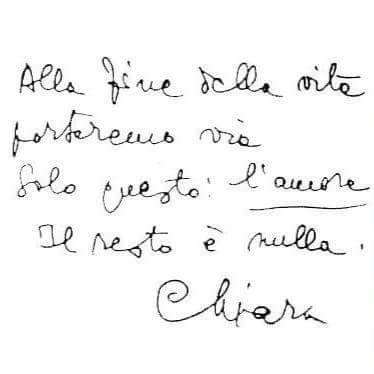 Alla fine della vita
porteremo via
Solo questo: l'amore
Il resto è nulla.
Chiara